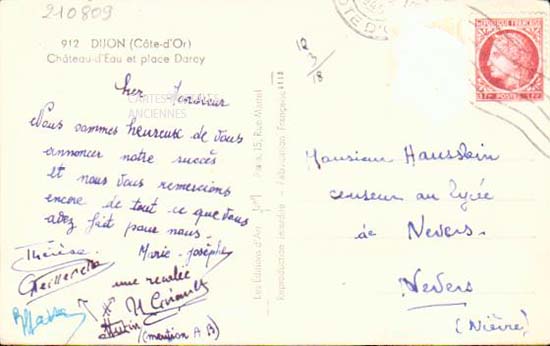 210809
912 DIJON (Côte-d'Or)
Château-d'Eau et place Darcy
CARTES POSTALES
ANCIENNES
Cher Monsieur
Nous sommes heureuse de vous
annoncer notre succès
et nous vous remercions
encore de tout ce que vous
avez fait pour nous.
Thérèse
Marie-Josèphe
une recalée
(mention A B)
12
3
18
Les Editions d'Art
Paris, 15, Rue Martel
Reproduction interdite - Fabrication Française
RÉPUBLIQUE FRANÇAISE
POSTES
CÔTE D'OR
Monsieur Hausslein
censeur au lycée
de Nevers.
Nevers
(Nièvre)